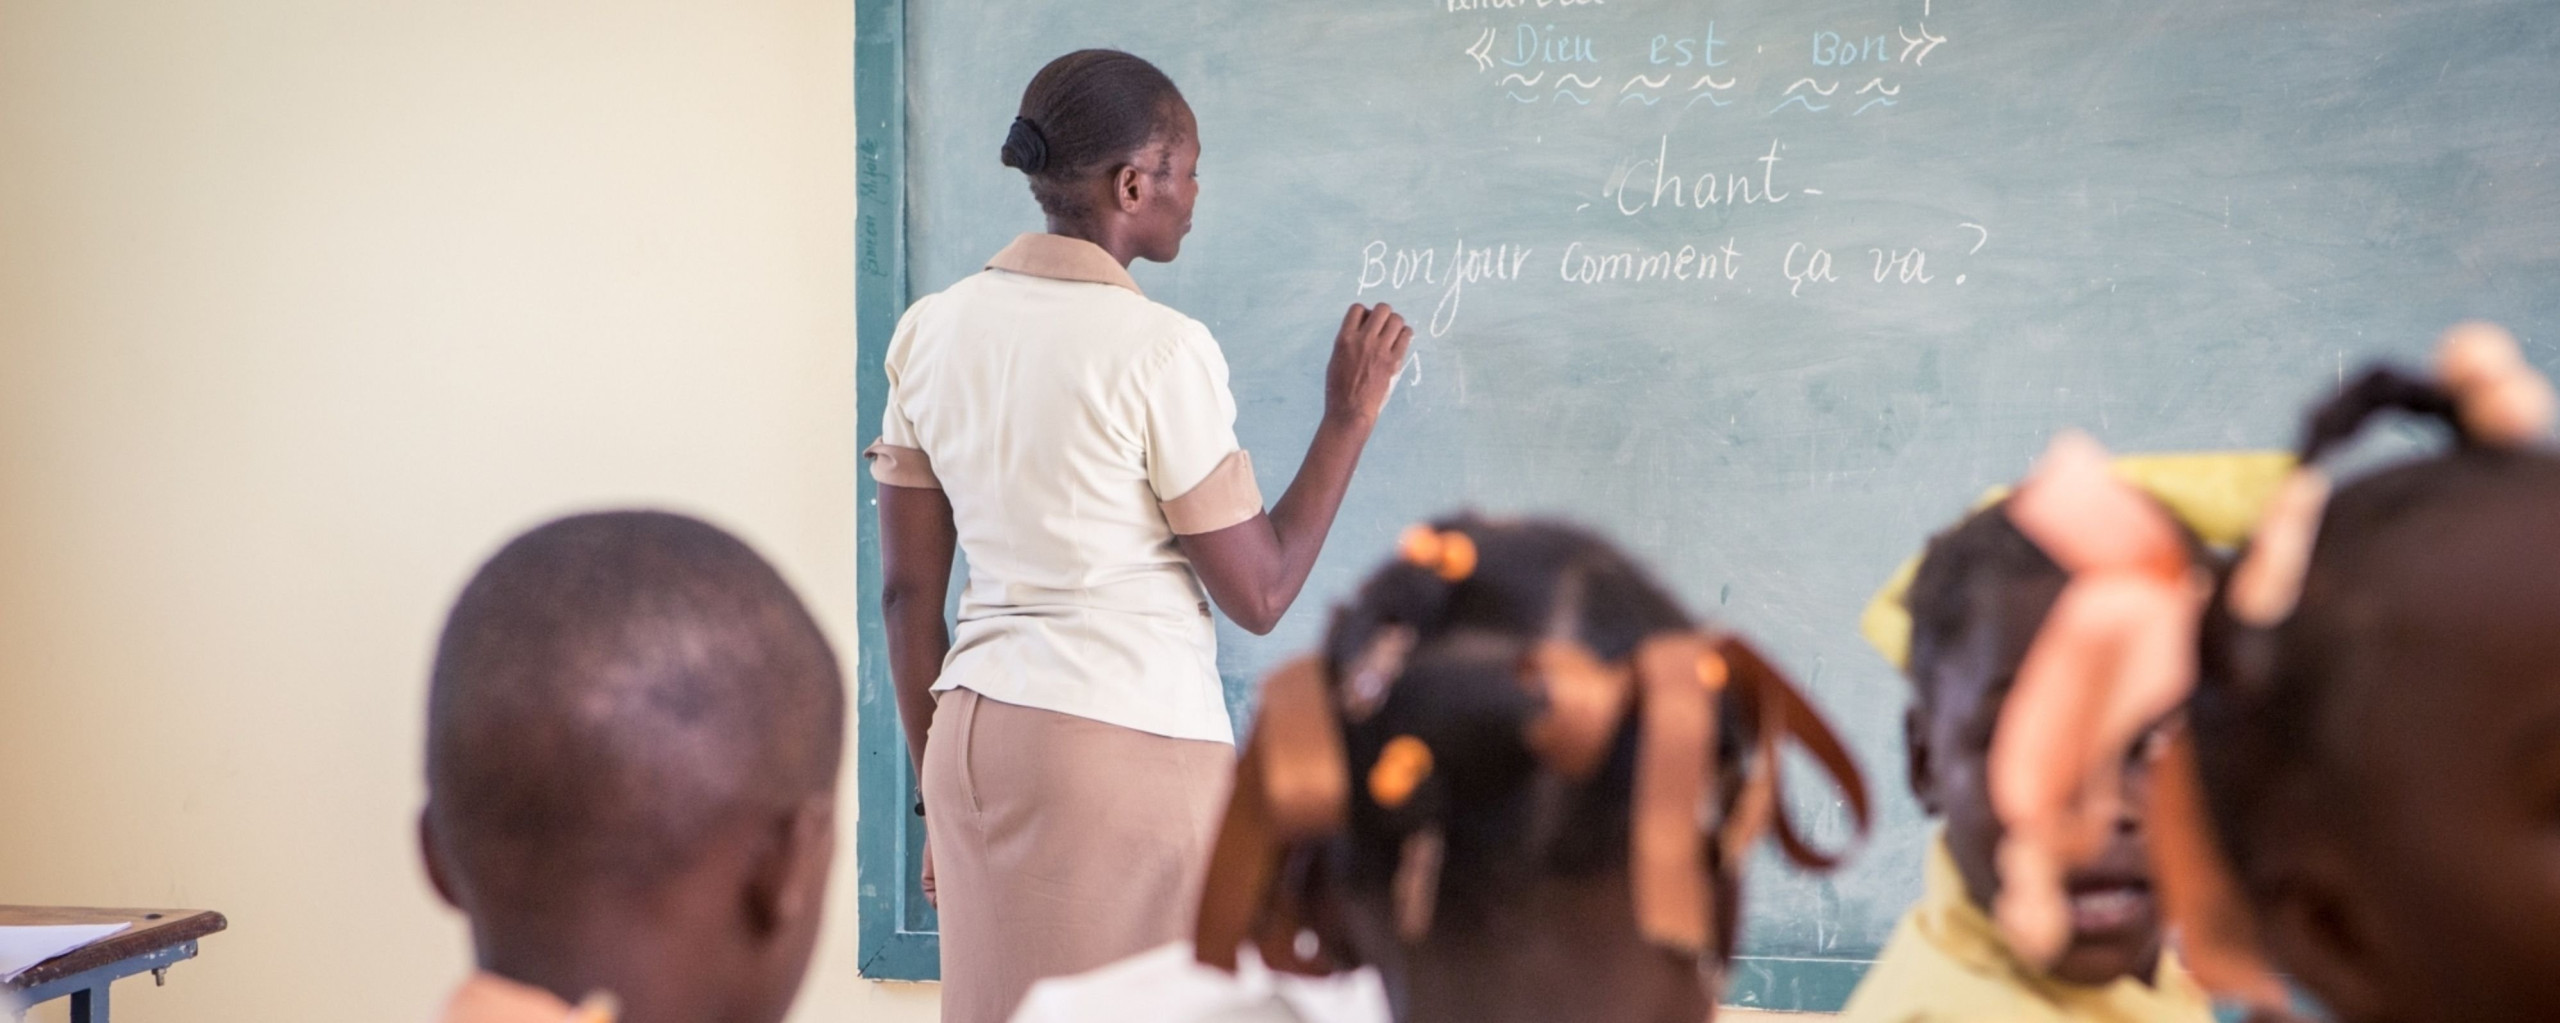 « Dieu est Bon »
- Chant -
Bonjour comment ça va ?